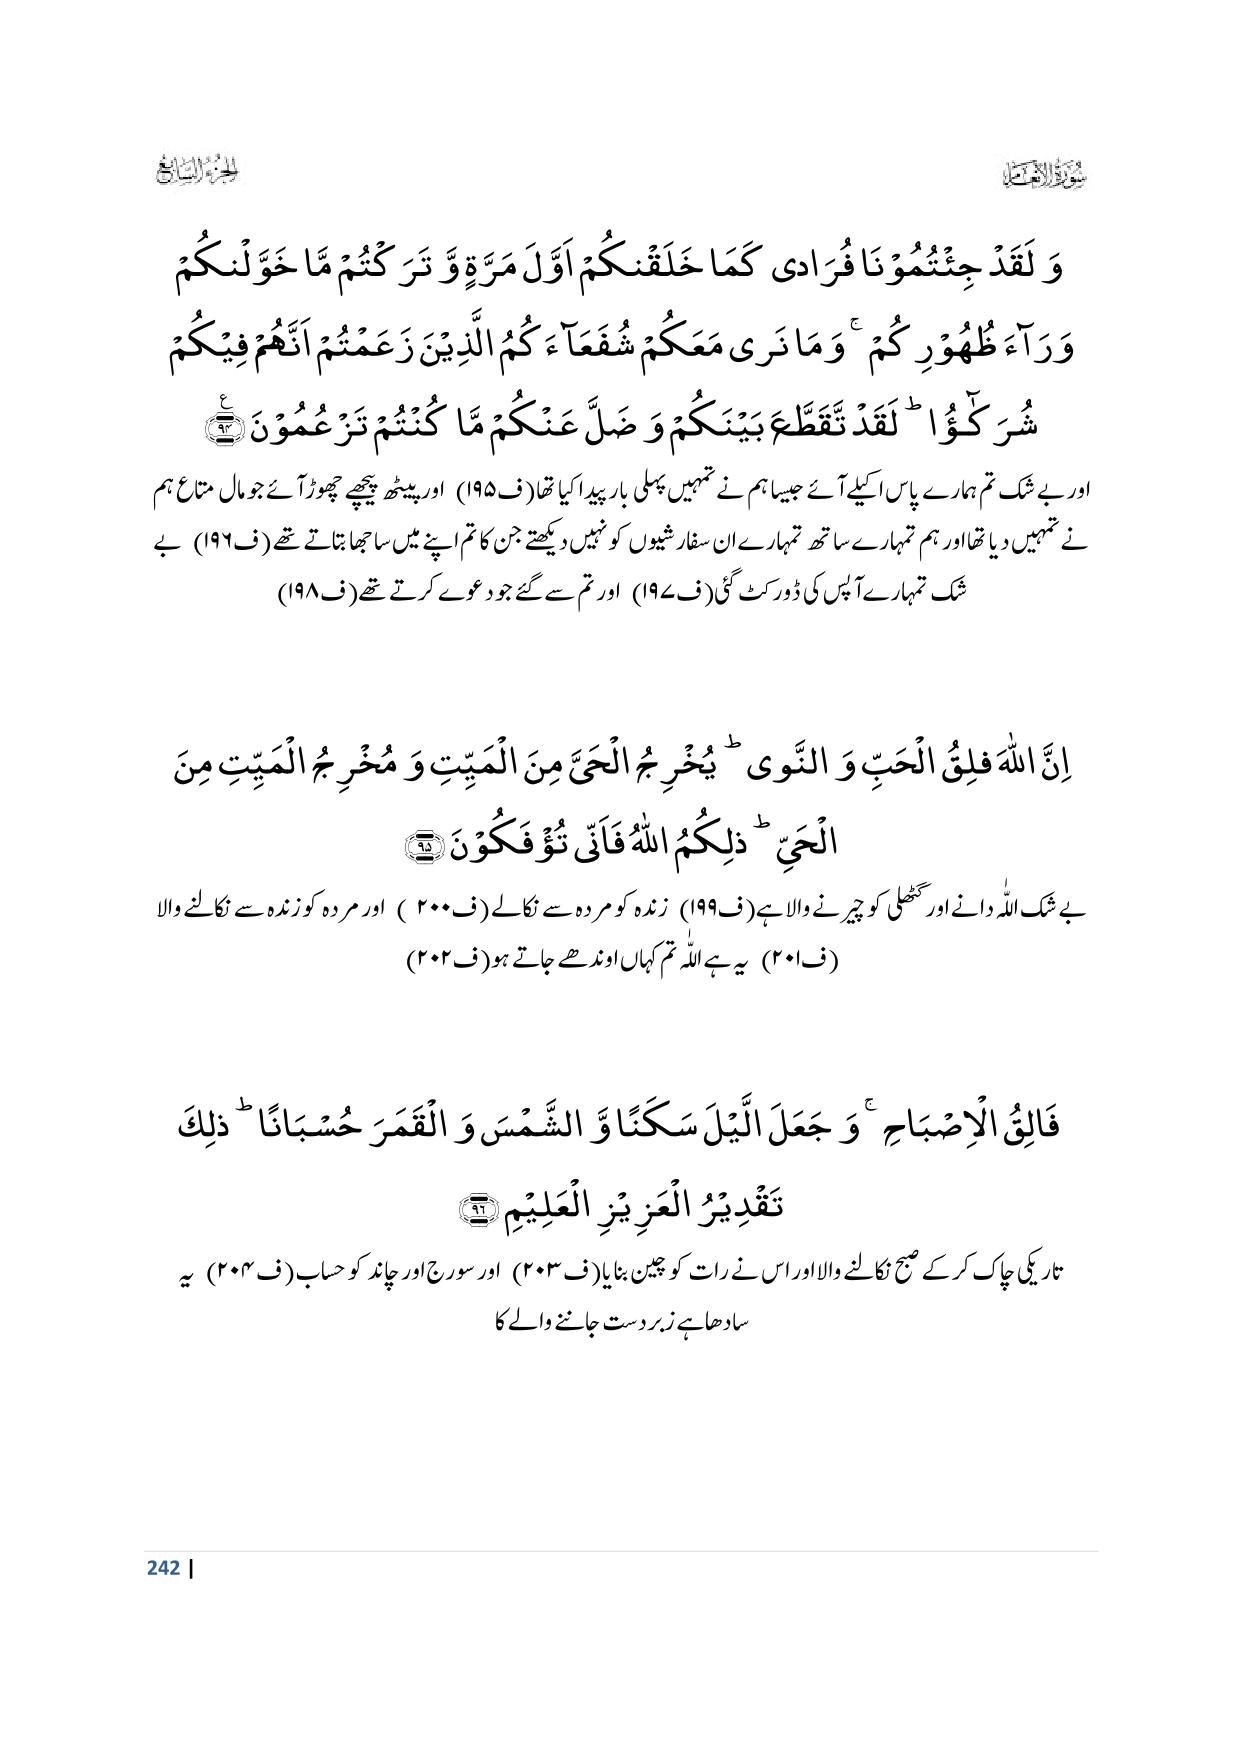 سُوْرَةُ الْاَنْعَام
الجزء السابع
وَ لَقَدْ جِئْتُمُوْنَا فُرَادٰى كَمَا خَلَقْنٰكُمْ اَوَّلَ مَرَّةٍ وَّ تَرَكْتُمْ مَّا خَوَّلْنٰكُمْ
وَرَآءَ ظُهُوْرِكُمْ ۚ وَ مَا نَرٰى مَعَكُمْ شُفَعَآءَكُمُ الَّذِيْنَ زَعَمْتُمْ اَنَّهُمْ فِيْكُمْ
شُرَكٰٓؤُا ؕ لَقَدْ تَّقَطَّعَ بَيْنَكُمْ وَ ضَلَّ عَنْكُمْ مَّا كُنْتُمْ تَزْعُمُوْنَ ﴿۹۴﴾ع
اور بے شک تم ہمارے پاس اکیلے آئے جیسا ہم نے تمہیں پہلی بار پیدا کیا تھا (ف۱۹۵) اور پیٹھ پیچھے چھوڑ آئے جو مال متاع ہم
نے تمہیں دیا تھا اور ہم تمہارے ساتھ تمہارے ان سفارشیوں کو نہیں دیکھتے جن کا تم اپنے میں ساجھا بتاتے تھے (ف۱۹۶) بے
شک تمہارے آپس کی ڈور کٹ گئی (ف۱۹۷) اور تم سے گئے جو دعوے کرتے تھے (ف۱۹۸)
اِنَّ اللّٰهَ فٰلِقُ الْحَبِّ وَ النَّوٰى ؕ يُخْرِجُ الْحَىَّ مِنَ الْمَيِّتِ وَ مُخْرِجُ الْمَيِّتِ مِنَ
الْحَىِّ ؕ ذٰلِكُمُ اللّٰهُ فَاَنّٰى تُؤْفَكُوْنَ ﴿۹۵﴾
بے شک اللّٰہ دانے اور گٹھلی کو چیرنے والا ہے (ف۱۹۹) زندہ کو مردہ سے نکالے (ف۲۰۰ ) اور مردہ کو زندہ سے نکالنے والا
(ف۲۰۱) یہ ہے اللّٰہ تم کہاں اوندھے جاتے ہو (ف۲۰۲)
فَالِقُ الْاِصْبَاحِ ۚ وَ جَعَلَ الَّيْلَ سَكَنًا وَّ الشَّمْسَ وَ الْقَمَرَ حُسْبَانًا ؕ ذٰلِكَ
تَقْدِيْرُ الْعَزِيْزِ الْعَلِيْمِ ﴿۹۶﴾
تاریکی چاک کر کے صبح نکالنے والا اور اس نے رات کو چین بنایا (ف۲۰۳) اور سورج اور چاند کو حساب (ف۲۰۴) یہ
سادھا ہے زبردست جاننے والے کا
242 |